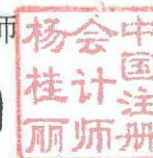 师
中国注册
会计师
杨桂丽